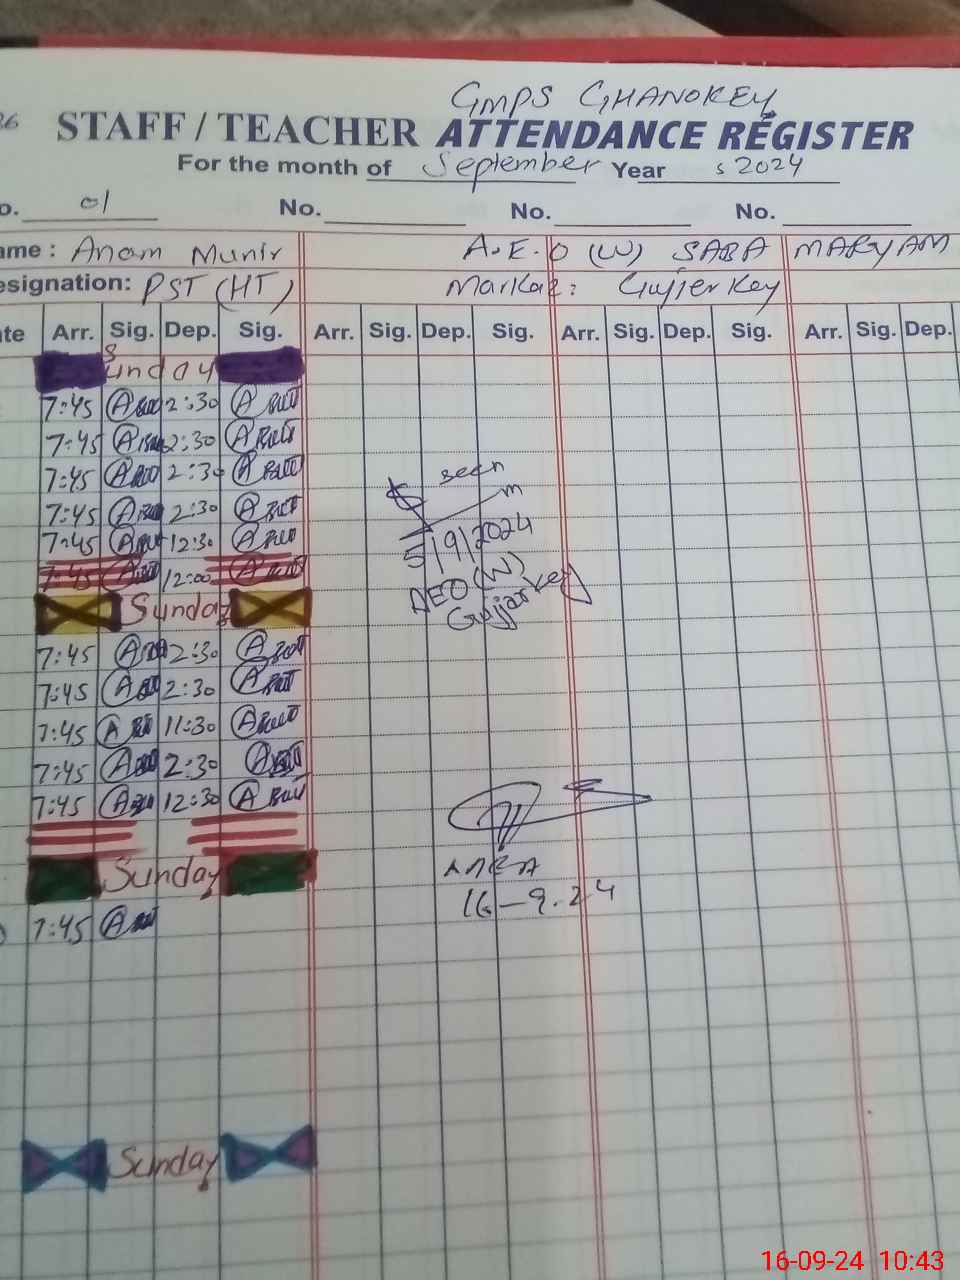 GMPS GHANOKEY
STAFF / TEACHER ATTENDANCE REGISTER
For the month of September Year 2024
o. 01 No. No. No.
ame : Anam Munir A.E.O (W) SABA MARYAM
esignation: PST (HT) Markaz: Gujjerkey
te Arr. Sig. Dep. Sig. Arr. Sig. Dep. Sig. Arr. Sig. Dep. Sig. Arr. Sig. Dep.
Sunday
7:45 2:30
7:45 2:30
7:45 2:30
seen
7:45 2:30
7:45 12:30
5/9/2024
7:45 12:00
AEO (W)
Gujjarkey
Sunday
7:45 2:30
7:45 2:30
7:45 11:30
7:45 2:30
7:45 12:30
Sunday
16-9-24
7:45
Sunday
16-09-24 10:43